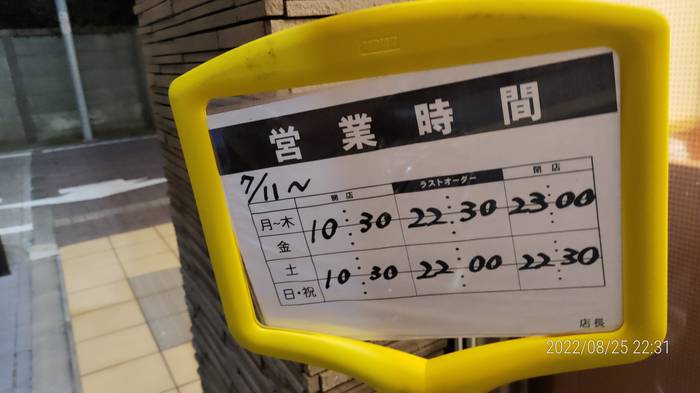 営業時間
7/11〜
開店 ラストオーダー 閉店
月〜木 10:30 22:30 23:00
金
土 10:30 22:00 22:30
日・祝
店長
2022/08/25 22:31